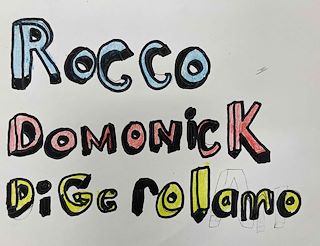 ROCCO
DOMONiCK
DiGeROlamo